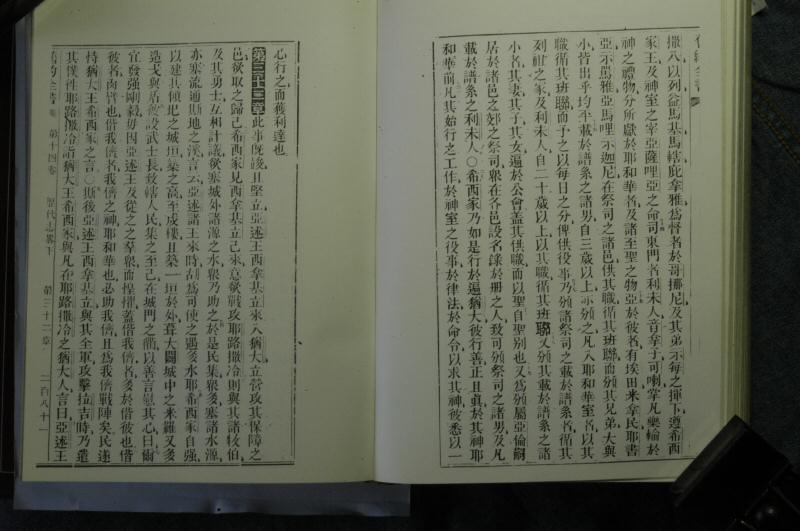 撒八以列益馬基馬轄庇拿雅為督者於哥挪尼及其弟示每之揮下遵希西
家王及神室之宰亞薩哩亞之命司東門者利未人音拿子可唎掌凡樂輸於
神之禮物分所獻於耶和華者及諸至聖之物亞於彼者有埃田米拿民耶書
亞示馬雅亞馬哩示迦尼在祭司之諸邑供其職循其班聯而頒其兄弟大與
小皆出乎均平載於譜系之諸男自三歲以上亦頒之凡入耶和華室者以其
職循其班聯而予之以每日之分俾供役事乃頒諸祭司之載於譜系者循其
列祖之家及利未人自二十歲以上以其職循其班聯又頒其載於譜系之諸
小名其妻其子其女遍於公會蓋其供職而以聖自聖別也又為頒屬亞倫嗣
居於諸邑之郊之祭司眾在各邑設名錄於册之人致可頒祭司之諸男及凡
載於譜系之利未人○希西家乃如是行於遍猶大彼行善正且真於其神耶
和華前凡其始行之工作於神室之役事於律法於命令以求其神彼悉以一
心行之而獲利達也
第三十二章此事既竣且堅立亞述王西拿基立來入猶大立營攻其保障之
邑欲取之歸己希西家見西拿基立已來意欲戰攻耶路撒冷則與其諸牧伯
及其勇士互相計議欲塞城外諸源之水眾乃助之於是民集眾多塞諸水源
亦塞流通斯地之溪言云亞述諸王來時胡為可使之遇多水耶希西家自強
以建其傾圮之城垣築之高至戍樓且築一垣於外葺大闢城中之米羅又多
造戈與盾彼設武士長致轄人民集之至己在城門之衢以善言慰其心曰爾
宜發強剛毅毋因亞述王及從之之羣眾而惶懼蓋偕我儕者多於偕彼也偕
彼者肉臂也偕我儕者我儕之神耶和華也必助我儕且為我儕戰陣矣民遂
恃猶大王希西家之言○斯後亞述王西拿基立與其全軍攻擊拉吉時乃遣
其僕往耶路撒冷詣猶大王希西家與凡在耶路撒冷之猶大人言曰亞述王
舊約全書 第十四卷 歷代志畧下 第三十二章 二百八十一